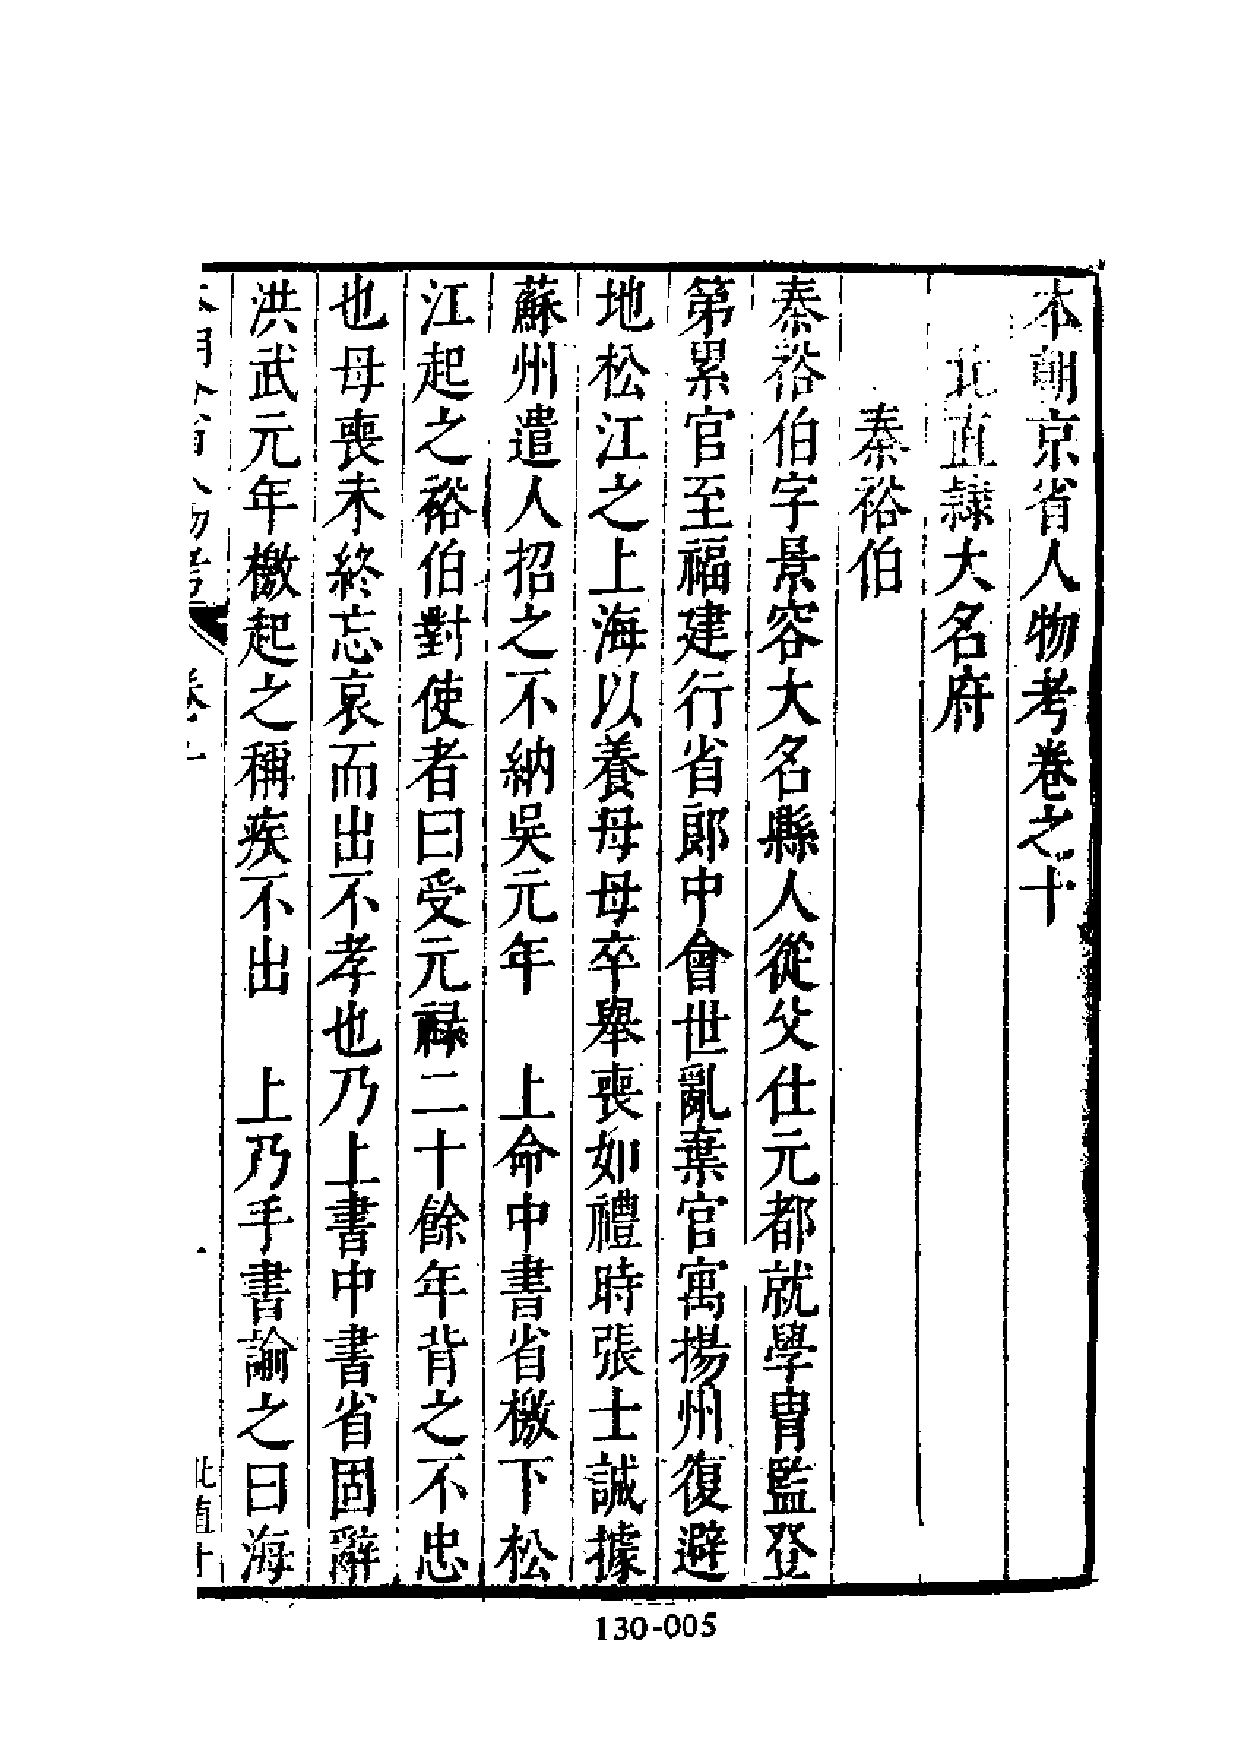 本朝京省人物考卷之十
北直隸大名府
秦裕伯
秦裕伯字景容大名縣人從父仕元都就學冑監登
第累官至福建行省郎中會世亂棄官寓揚州復避
地松江之上海以養母母卒舉喪如禮時張士誠據
蘇州遣人招之不納吳元年　上命中書省檄下松
江起之裕伯對使者曰受元祿二十餘年背之不忠
也母喪未終忘哀而出不孝也乃上書中書省固辭
洪武元年檄起之稱疾不出　上乃手書諭之曰海
130-005